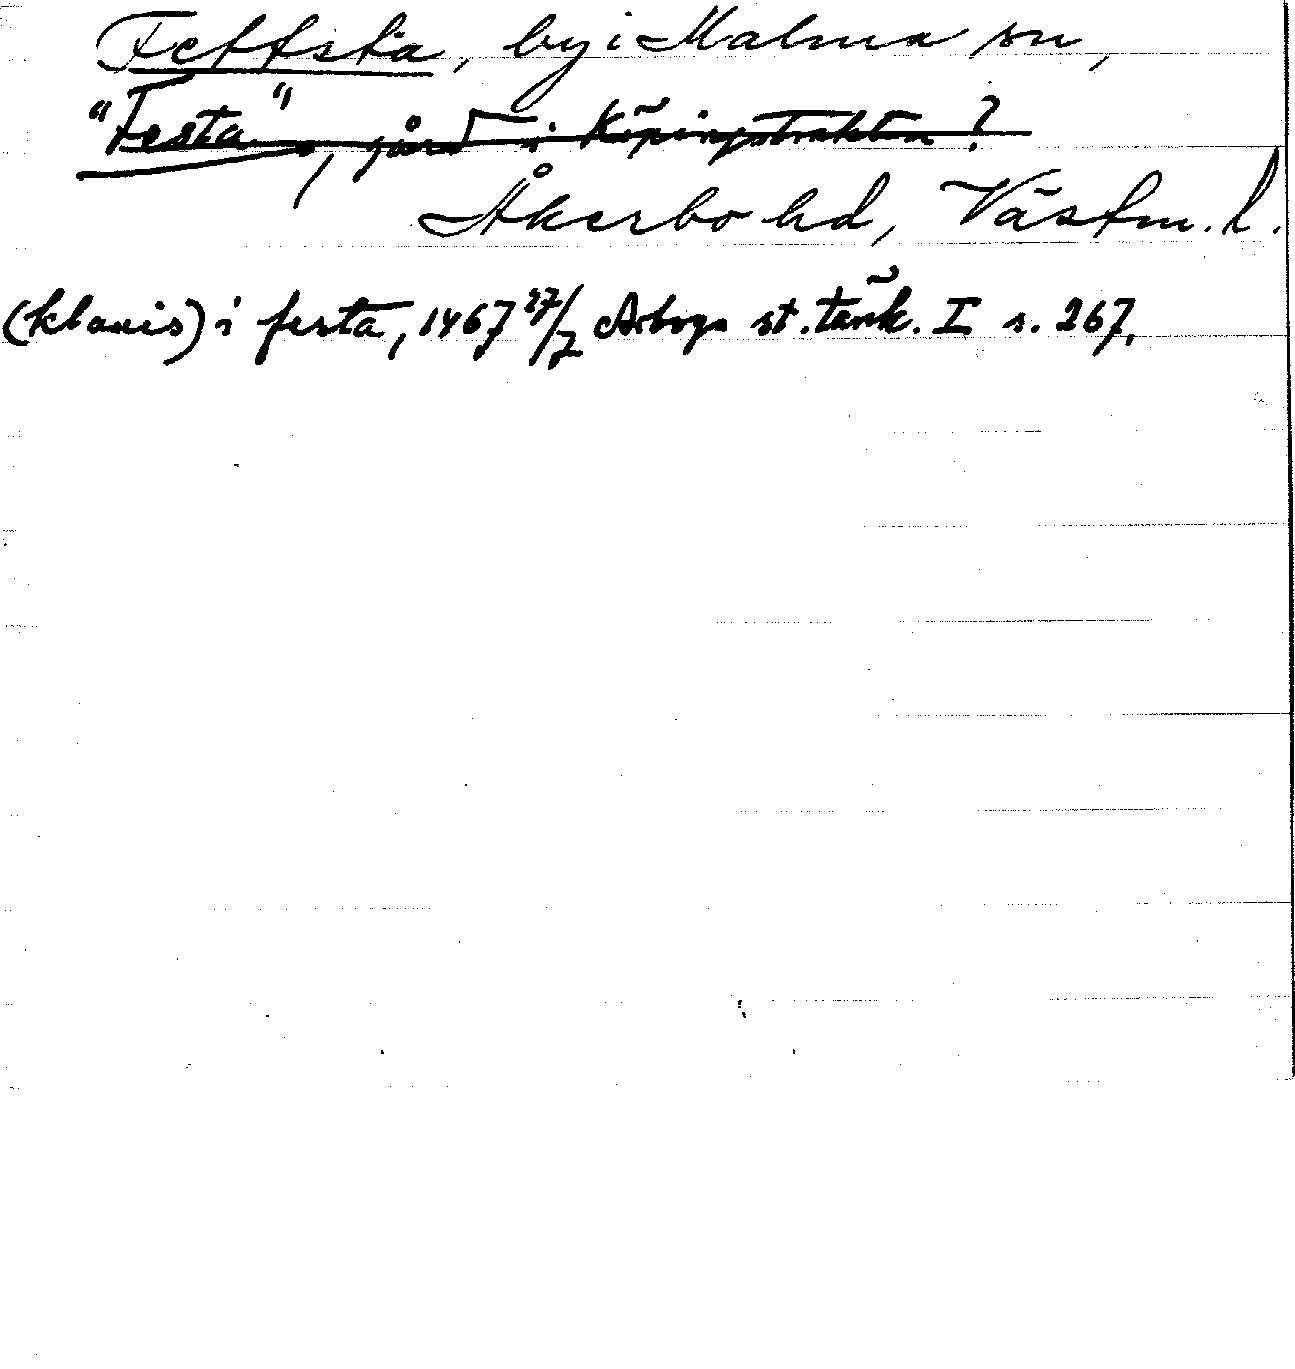 Fettsta, by i Malma sn,
"Festa", gård i Köpingstrakten?
Åkerbo hd, Västm. l.
(klauis) i festa, 1467 27/7 Arboga st. tänk. I s. 267.